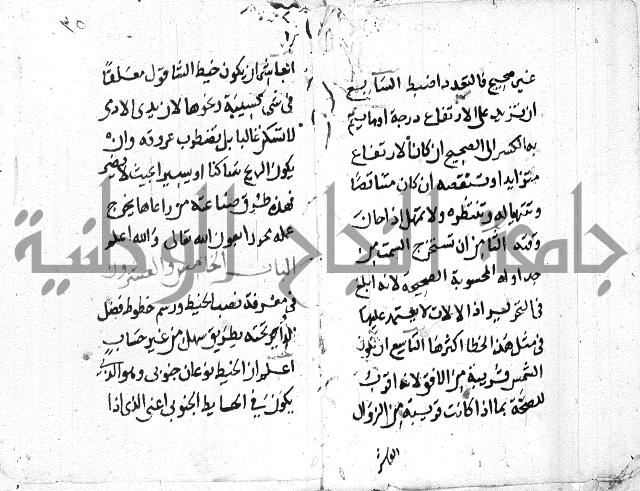 غير صحيح فالتعدد اضبط السابع
ان تزيد على الارتفاع درجة اوما يتم
به الكسر الى الصحيح ان كان الارتفاع
متزايدا وتنقصه ان كان متناقصا
وتتهيا له وتنتظره ولا تمهل اذا حان
وقته الثامن ان تستخرج السمت من
جداوله المحسوبة الصحيحه لانه ابلغ
في التحرير اذ الالات لا يعتمد عليها
في مثل هذا لخطا اكثرها التاسع ان تكون
الشمس قريبة من الافق لانه اقرب
للصحة بما اذا كانت قريبة من الزوال
العاشر
٣٥
ان يكون خيط الشاقول معلقا
في شي كسيبة ونحوها لان يدي الادمي
لا تسكن غالبا بل يضطرب عروقه وان
يكون الريح ساكنا او يسيرا بحيث لا يضر
فهذه طريق صناعته من راعاها يخرج
عمله محررا بعون الله تعالى والله اعلم
الباب الخامس والعشرون
في معرفة نصب الخيط ورسم خطوط فضل
الداير تحته بطريق سهل من غير حساب
اعلم ان الخيط نوعان جنوبي وهو الذي
يكون في الحايط الجنوبي اعني الذي اذا
جامعة النجاح الوطنية